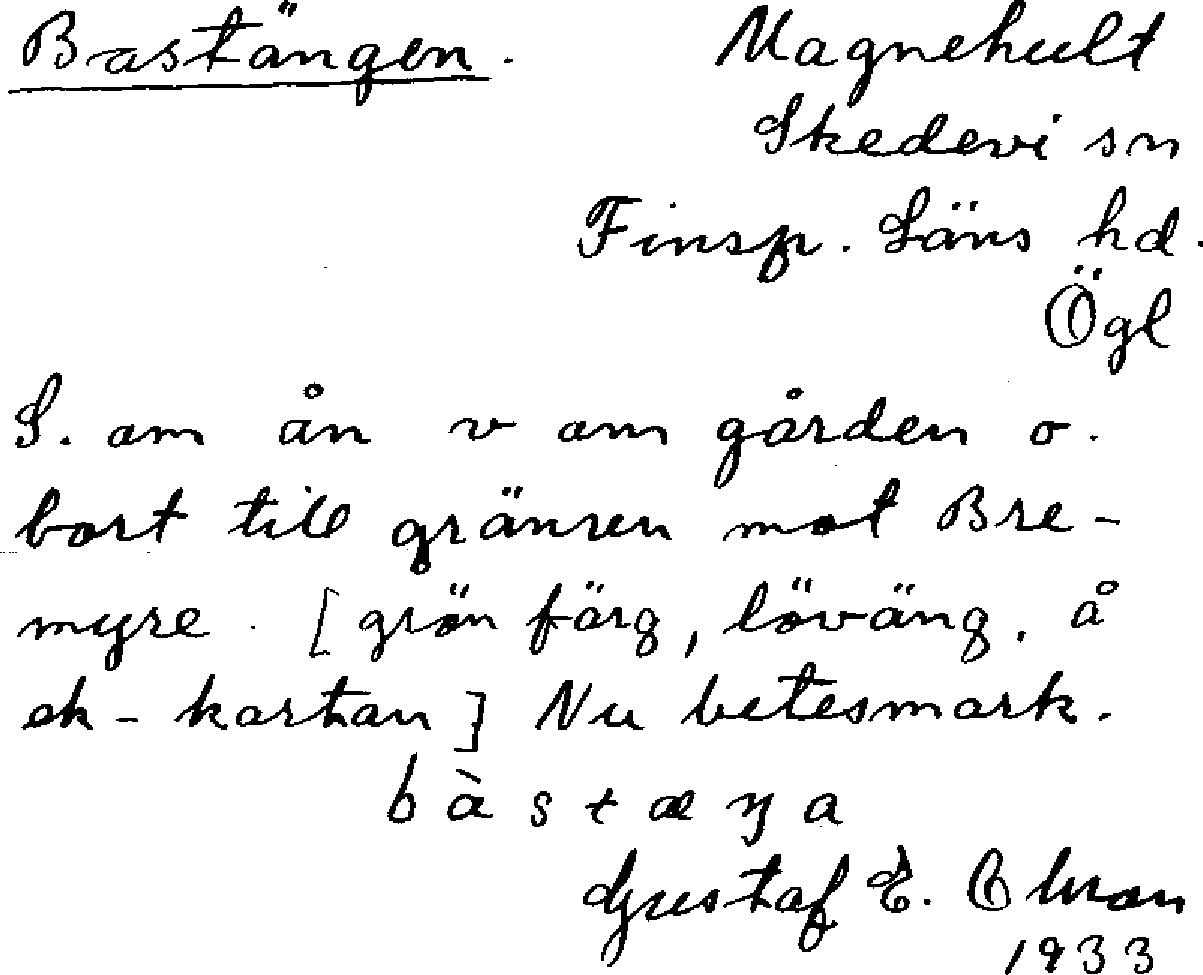 Bastängen. Magnehult
Skedevi sn
Finsp. Läns hd.
Ögl
S. om ån v om gården o.
bort till gränsen mot Bre-
myre. [grön färg, löväng, å
ek-kartan] Nu betesmark.
bàstæŋa
Gustaf E.
1933